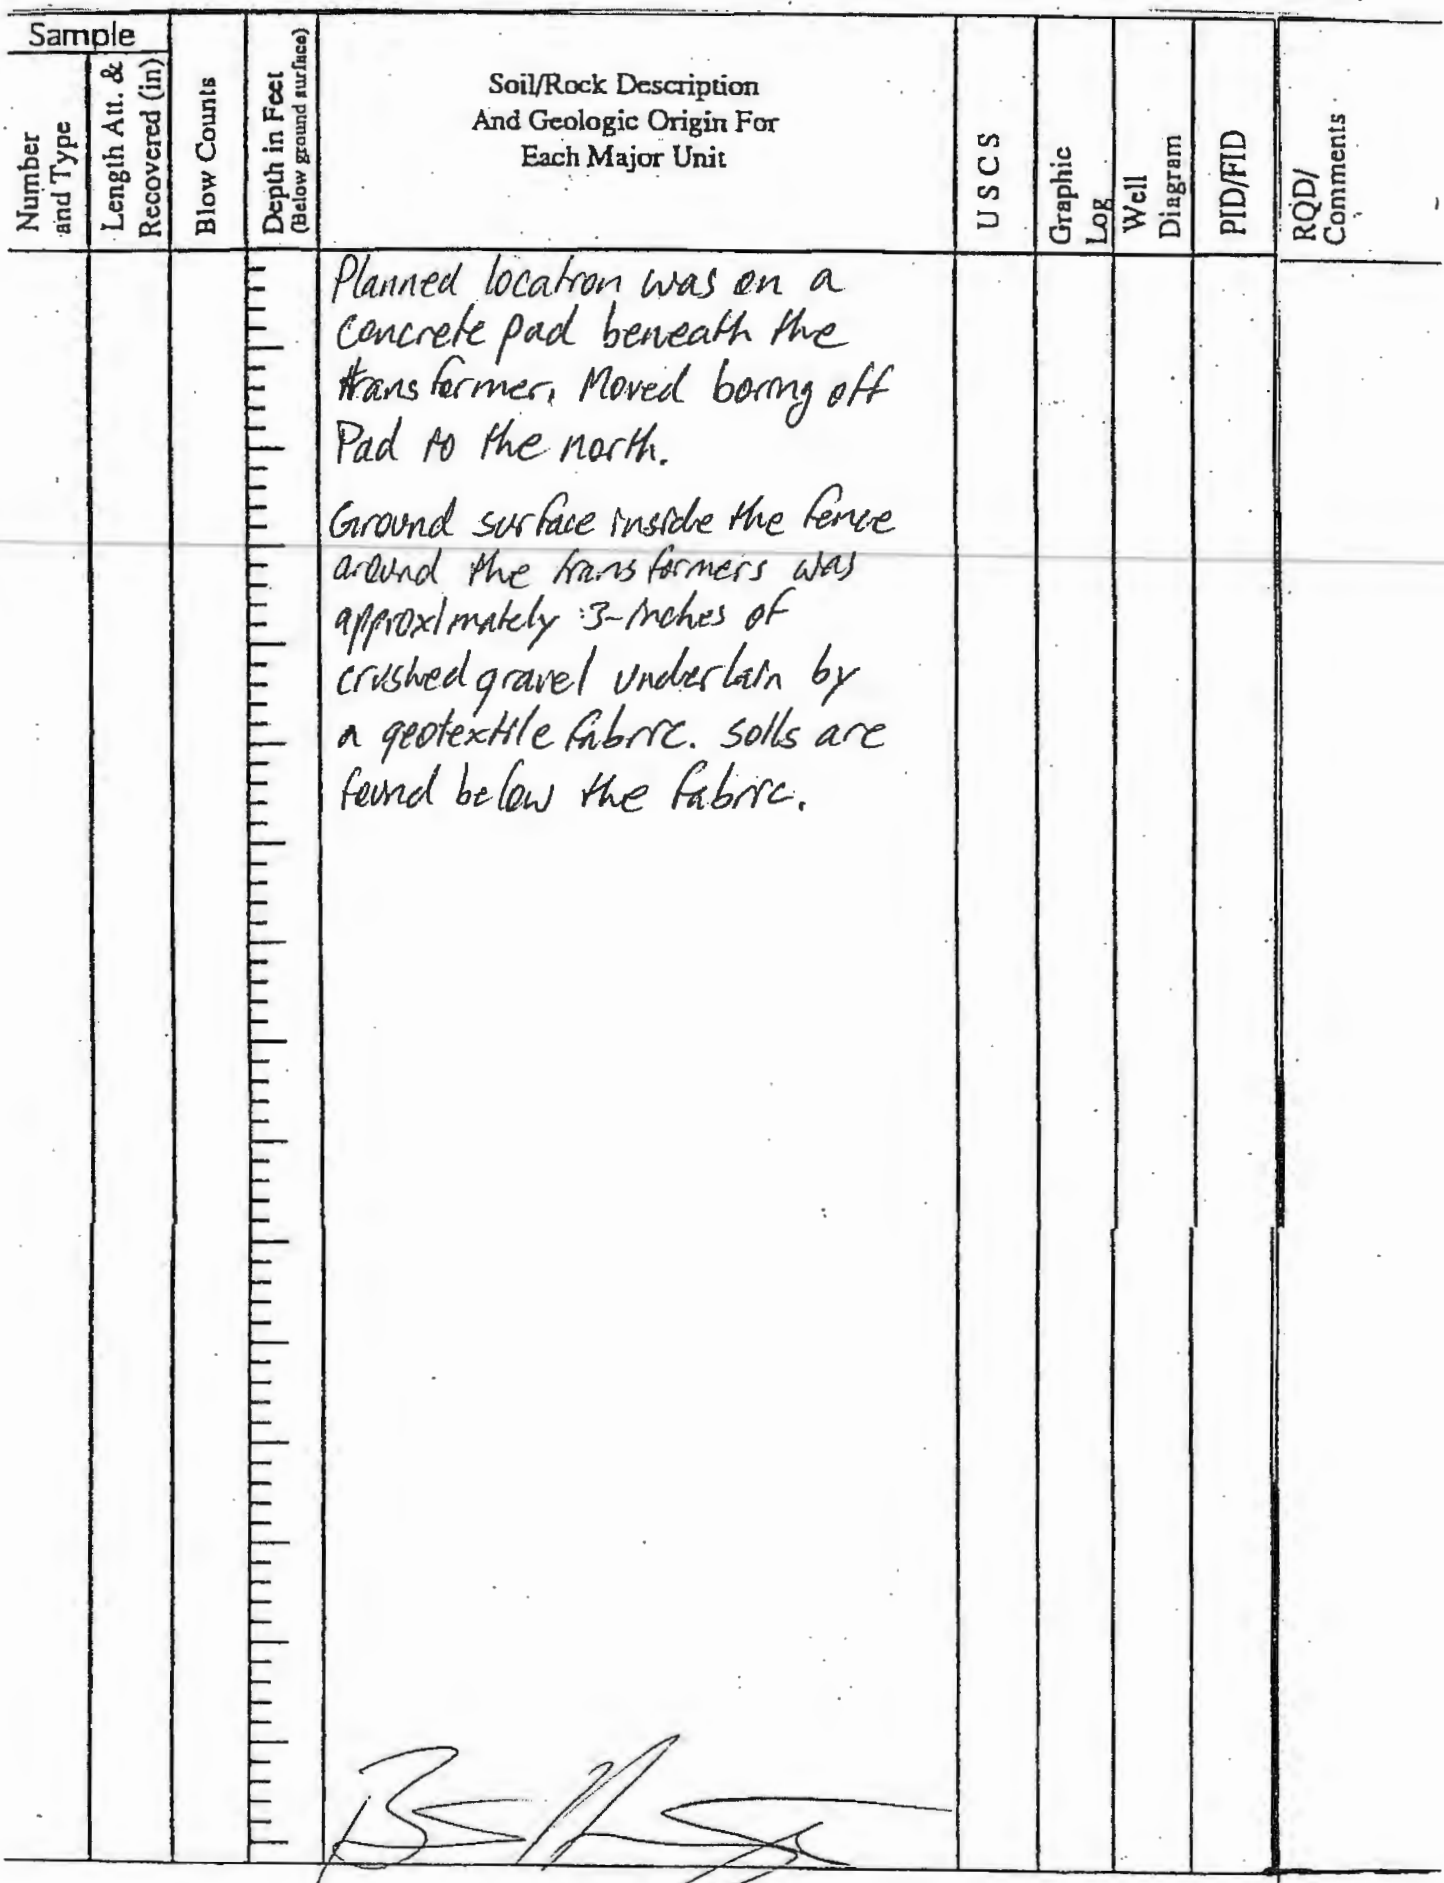 Sample
Number
and Type
Length Att. &
Recovered (in)
Blow Counts
Depth in Feet
(Below ground surface)
Soil/Rock Description
And Geologic Origin For
Each Major Unit
USCS
Graphic
Log
Well
Diagram
PID/FID
RQD/
Comments
Planned location was on a
concrete pad beneath the
transformer. Moved boring off
Pad to the north.
Ground surface inside the fence
around the transformers was
approximately 3-inches of
crushed gravel underlain by
a geotextile fabric. soils are
found below the fabric.